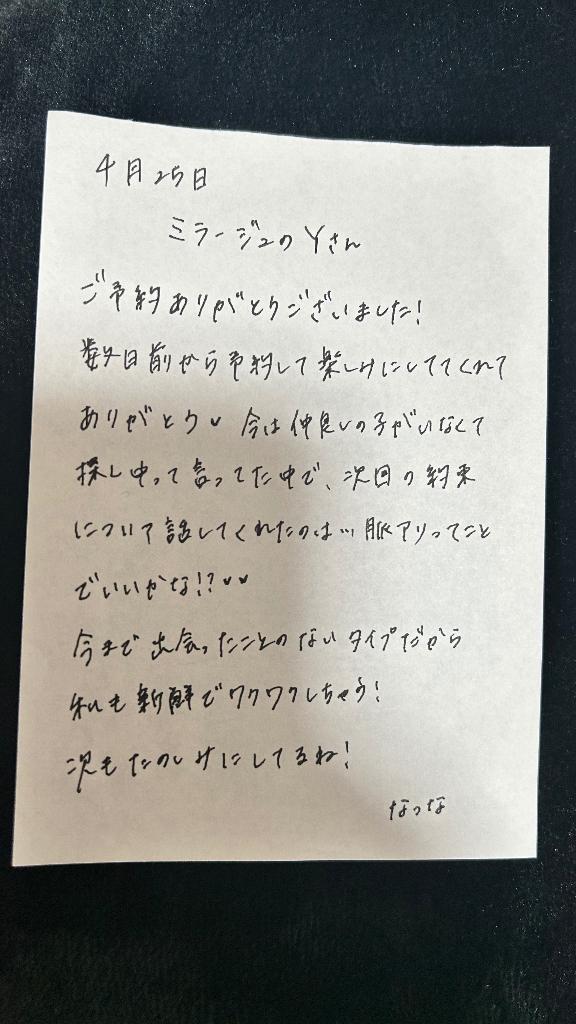 4月25日
ミラージュのYさん
ご予約ありがとうございました!
数日前から予約して楽しみにしててくれて
ありがとう♥ 今は仲良しの子がいなくて
探し中って言ってた中で、次回の約束
について話してくれたのは…脈アリってこと
でいいかな!?♥♥
今まで出会ったことのないタイプだから
私も新鮮でワクワクしちゃう!
次もたのしみにしてるね!
なつな